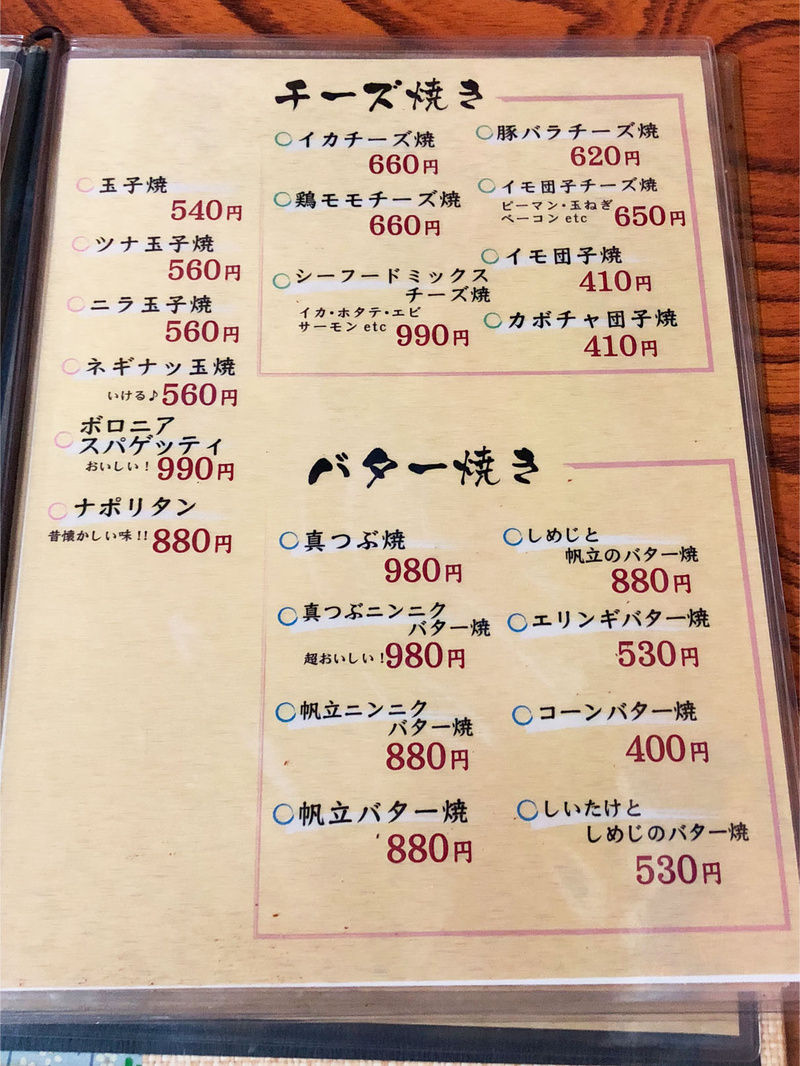 チーズ焼き
玉子焼
540円
ツナ玉子焼
560円
ニラ玉子焼
560円
ネギナッ玉焼
いける♪560円
ボロニア
スパゲッティ
おいしい！990円
ナポリタン
昔懐かしい味!!880円
イカチーズ焼
660円
鶏モモチーズ焼
660円
シーフードミックス
チーズ焼
イカ・ホタテ・エビ
サーモンetc 990円
豚バラチーズ焼
620円
イモ団子チーズ焼
ピーマン・玉ねぎ
ベーコンetc 650円
イモ団子焼
410円
カボチャ団子焼
410円
バター焼き
真つぶ焼
980円
真つぶニンニク
バター焼
超おいしい！980円
帆立ニンニク
バター焼
880円
帆立バター焼
880円
しめじと
帆立のバター焼
880円
エリンギバター焼
530円
コーンバター焼
400円
しいたけと
しめじのバター焼
530円